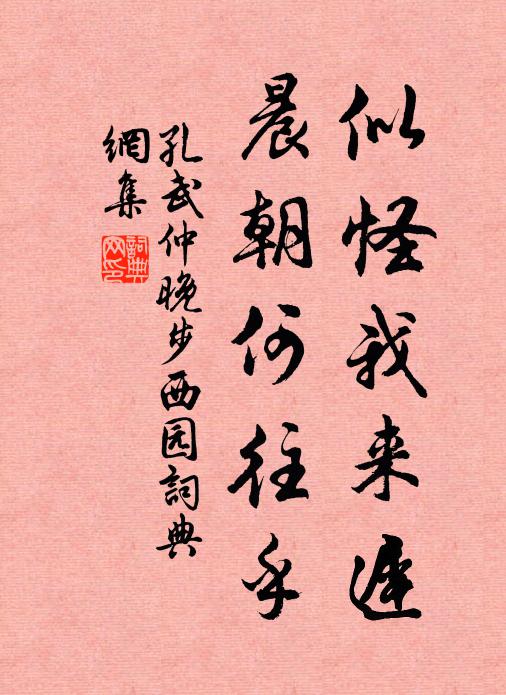 似怪我来遲
晨朝何往乎
孔武仲晚步西园詞典
網集
詞典
网印